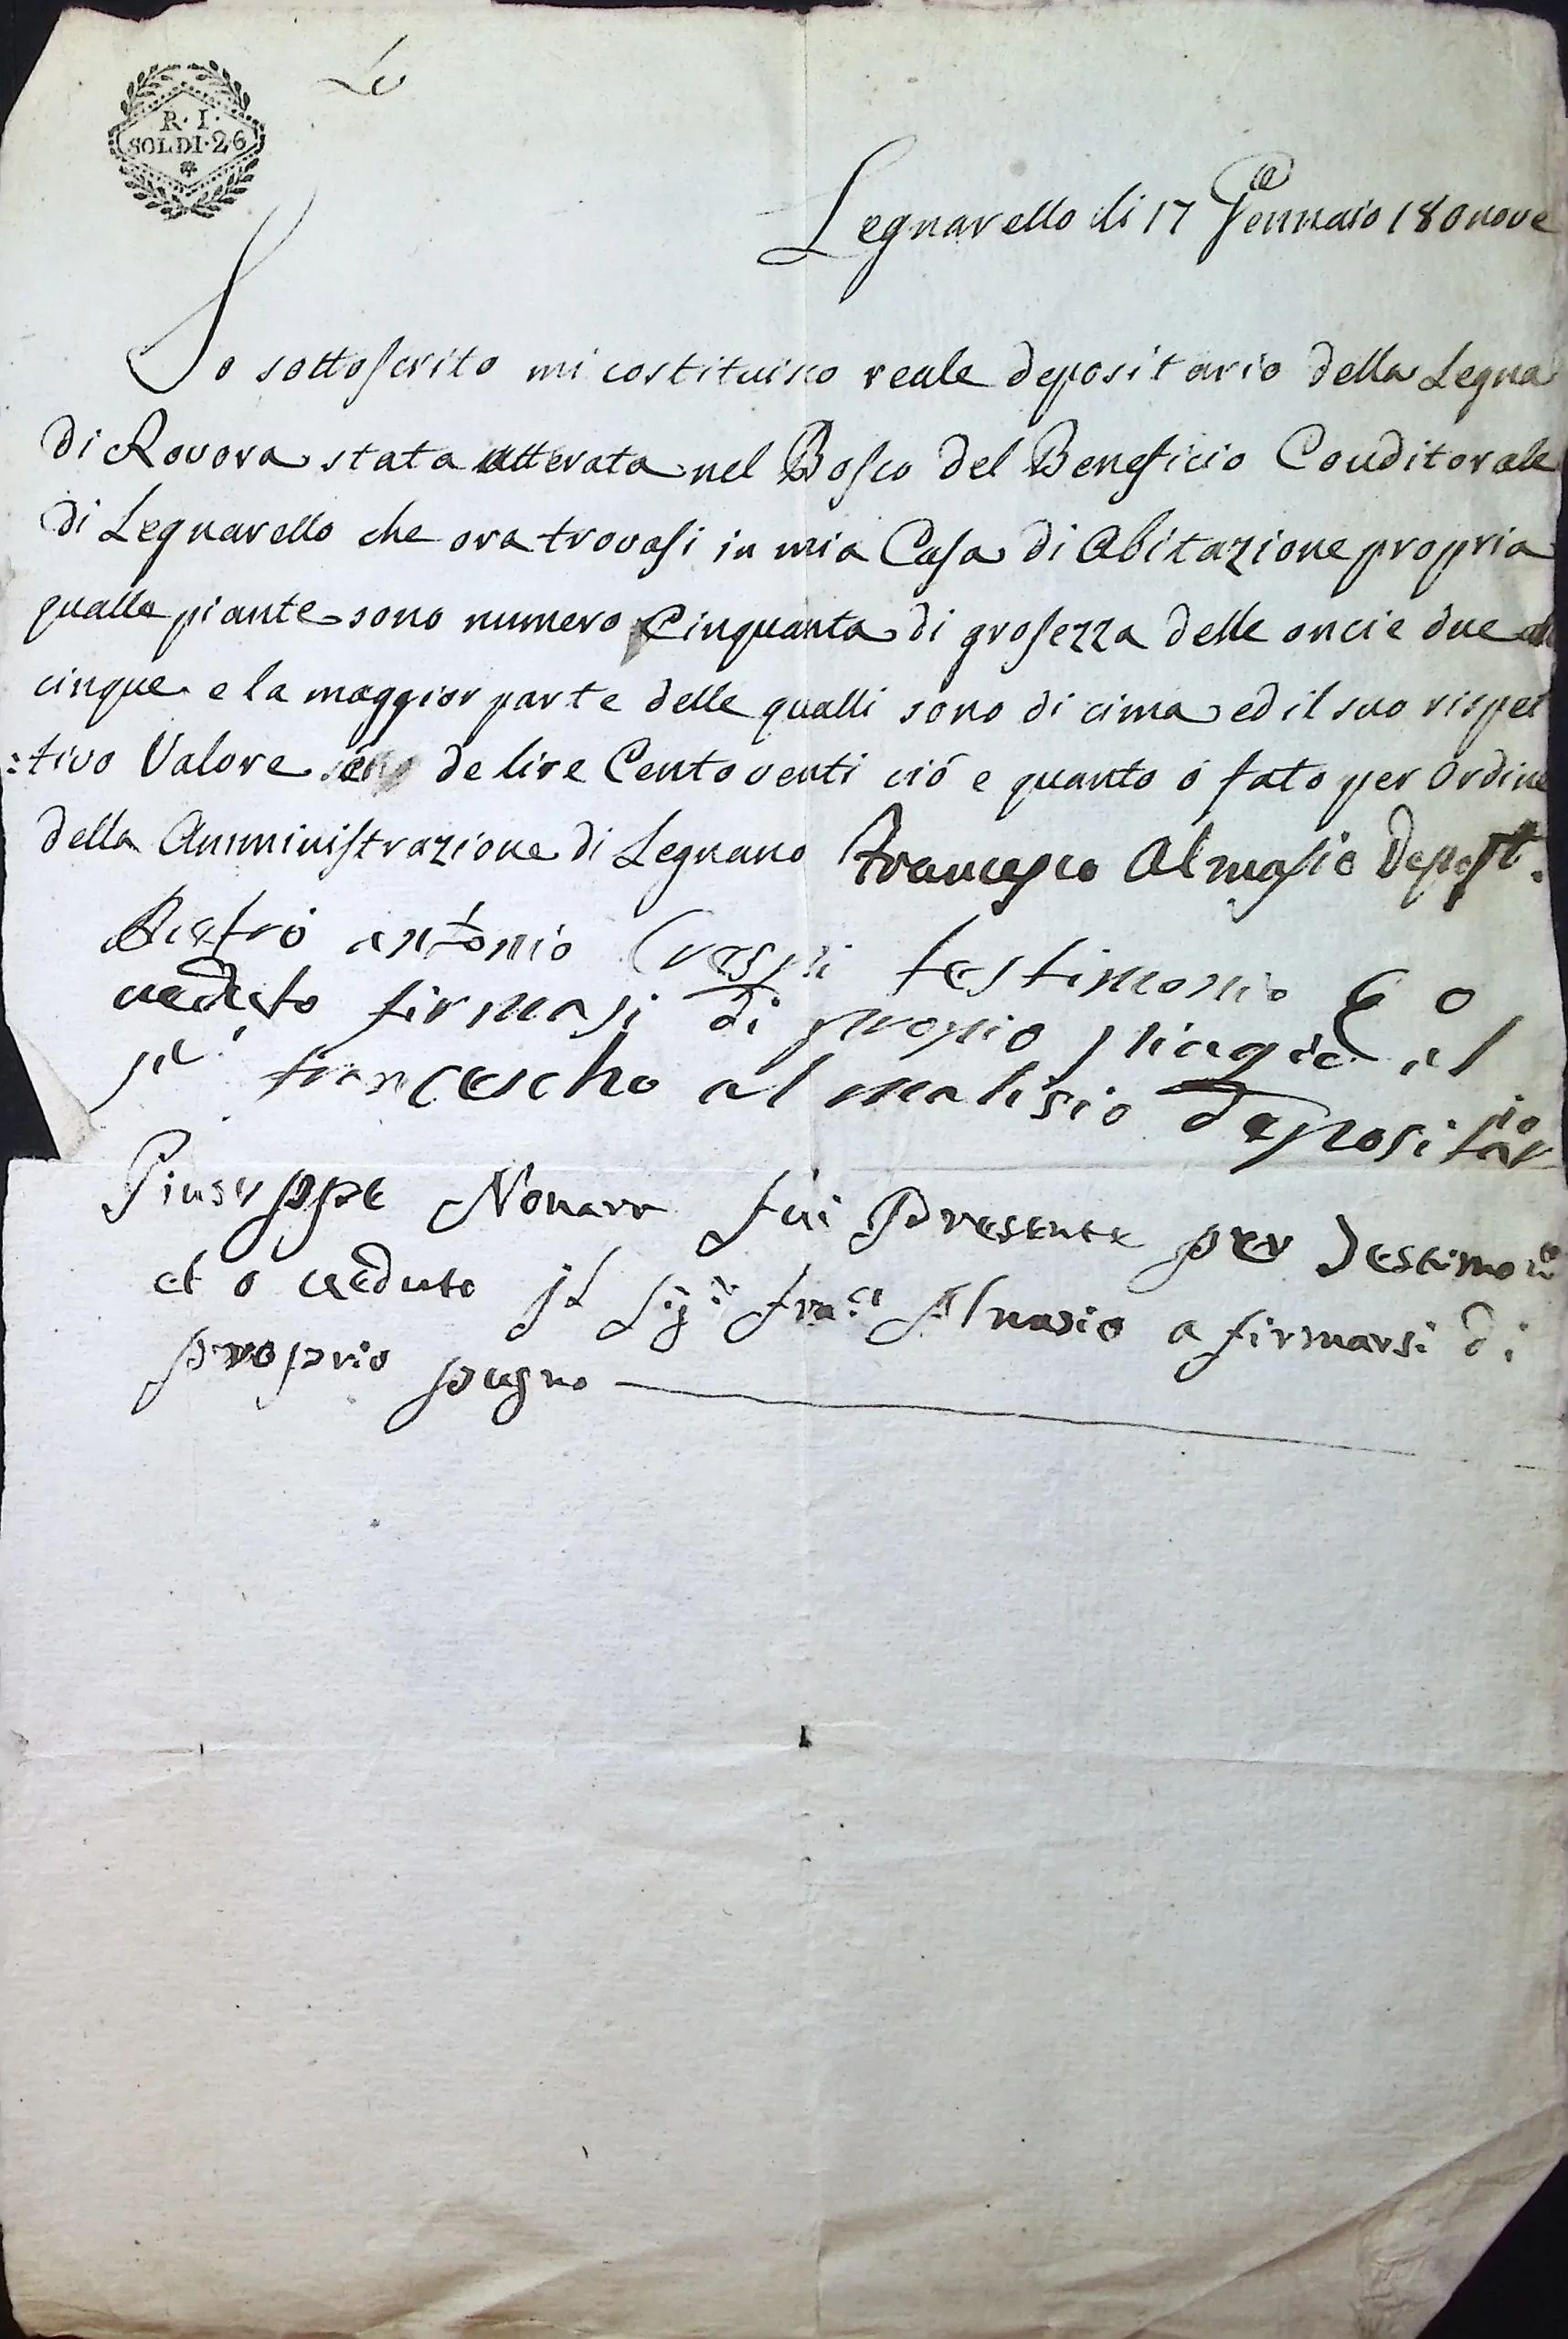 R. I.
SOLDI. 26
Legnarello li 17 Gennaio 180nove
Io sottoscrito mi costituisco reale depositario della Legna
di Rovora stata atterata nel Bosco del Beneficio Couditorale
di Legnarello che ora trovasi in mia Casa di Abitazione propria
qualle piante sono numero Cinquanta di grosezza delle oncie due
cinque e la maggior parte delle qualli sono di cima ed il suo rispet
:tivo Valore de lire Cento venti ció e quanto ó fato per Ordine
della Amministrazione di Legnano Francesco Almasio Deposit.
Pietro antonio Crespi testimonio E o
veduto firmasi di propio il
francescho al malisio depositario
Giuseppe Novara fui Presente per Testimonio
et o veduto il Sig.r Fra.co Almasio a firmarsi di
proprio pugno